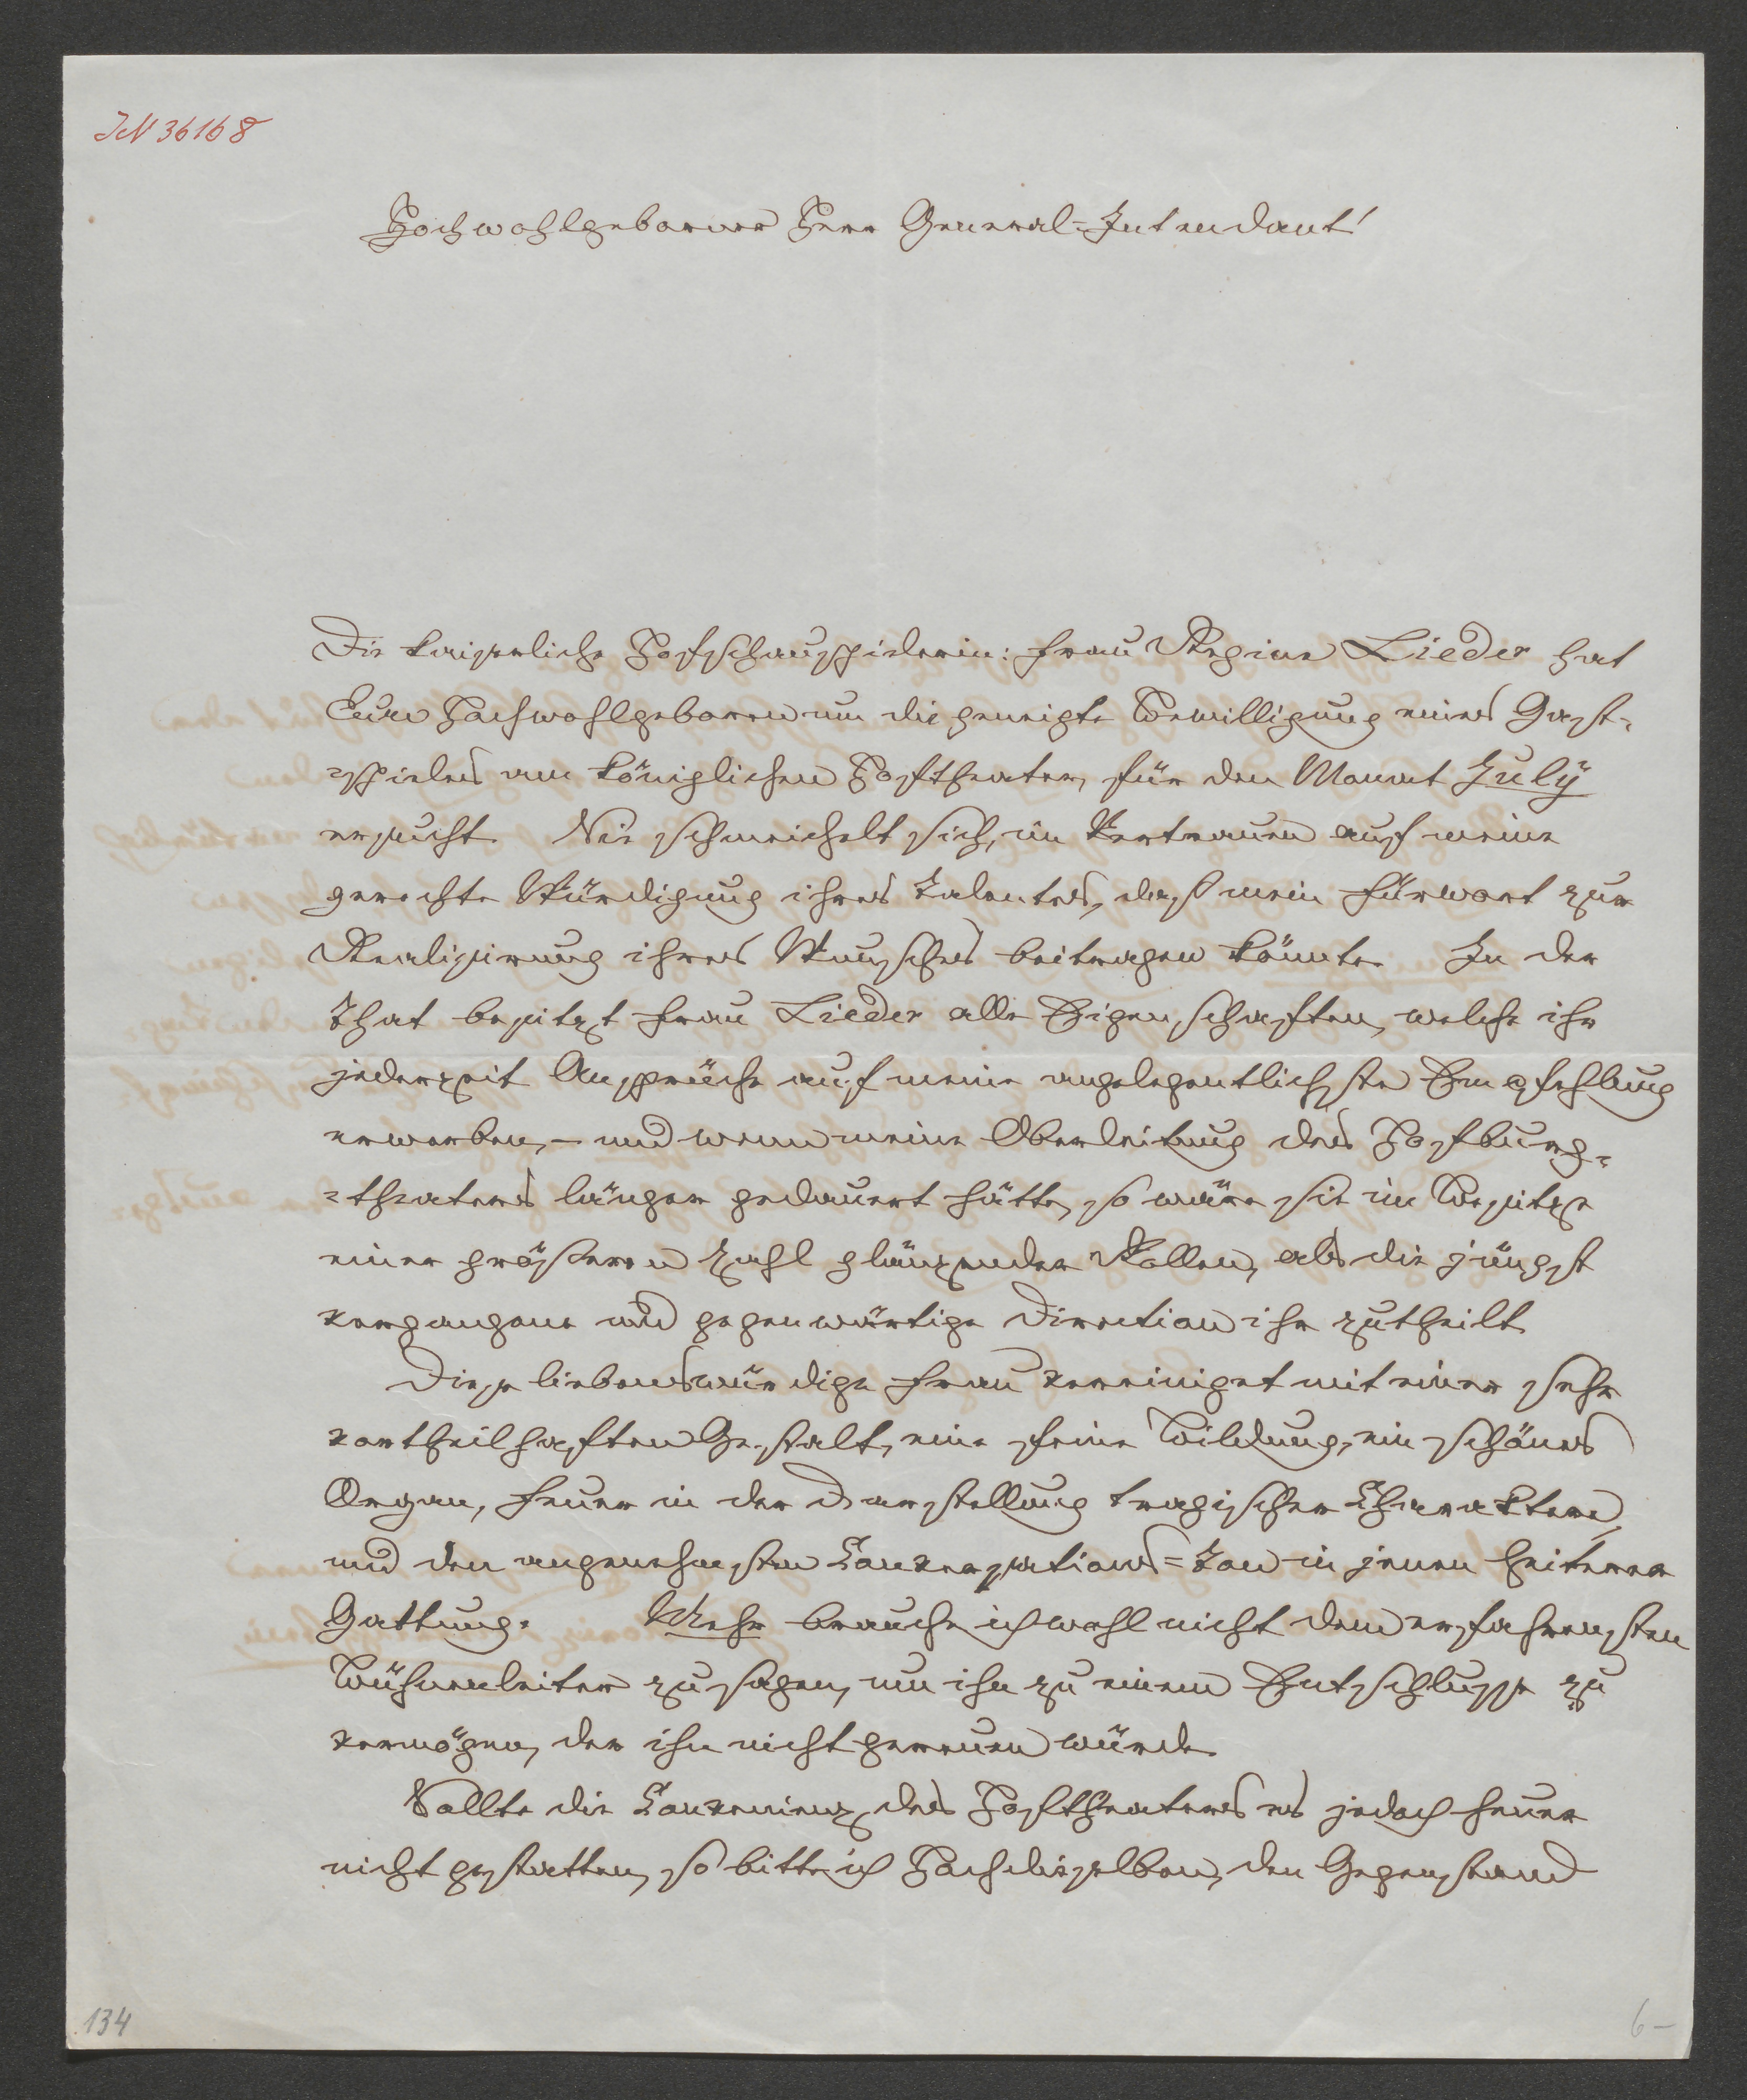 IN 36168
Hochwohlgeborner Herr General-Intendant!
Die kaiserliche Hofschauspielerin: Frau Regine Lieder hat
Euer Hochwohlgeboren um die geneigte Bewilligung eines Gast-
spieles am königlichen Hoftheater, für den Monat July
ersucht. Sie schmeichelt sich, im Vertrauen auf meine
gerechte Würdigung ihres Talentes, daß mein Fürwort zur
Realisirung ihres Wunsches beitragen könnte. In der
That besitzt Frau Lieder alle Eigenschaften, welche ihr
jederzeit Ansprüche auf meine angelegentlichste Empfehlung
erwerben, – und wenn meine Oberleitung des Hofburg-
=theaters länger gedauert hätte, so wäre sie im Besitze
einer größeren Zahl glänzender Rollen, als die jüngst
vergangene und gegenwärtige Direction ihr zutheilt.
Diese liebenswürdige Frau vereiniget mit einer sehr
vortheilhaften Gestalt, eine feine Bildung, ein schönes
Organ, Feuer in der Darstellung tragischer Charaktere,
und den angenehmsten Conversations=Ton in jenen heiterer
Gattung. Mehr brauche ich wohl nicht dem erfahrensten
Bühnenleiter zu sagen, um ihn zu einem Entschlusse zu
vermögen, der ihn nicht gereuen würde.
Sollte die Convenienz des Hoftheaters es jedoch heuer
nicht gestatten, so bitte ich Hochdieselben, den Gegenstand
134
6–